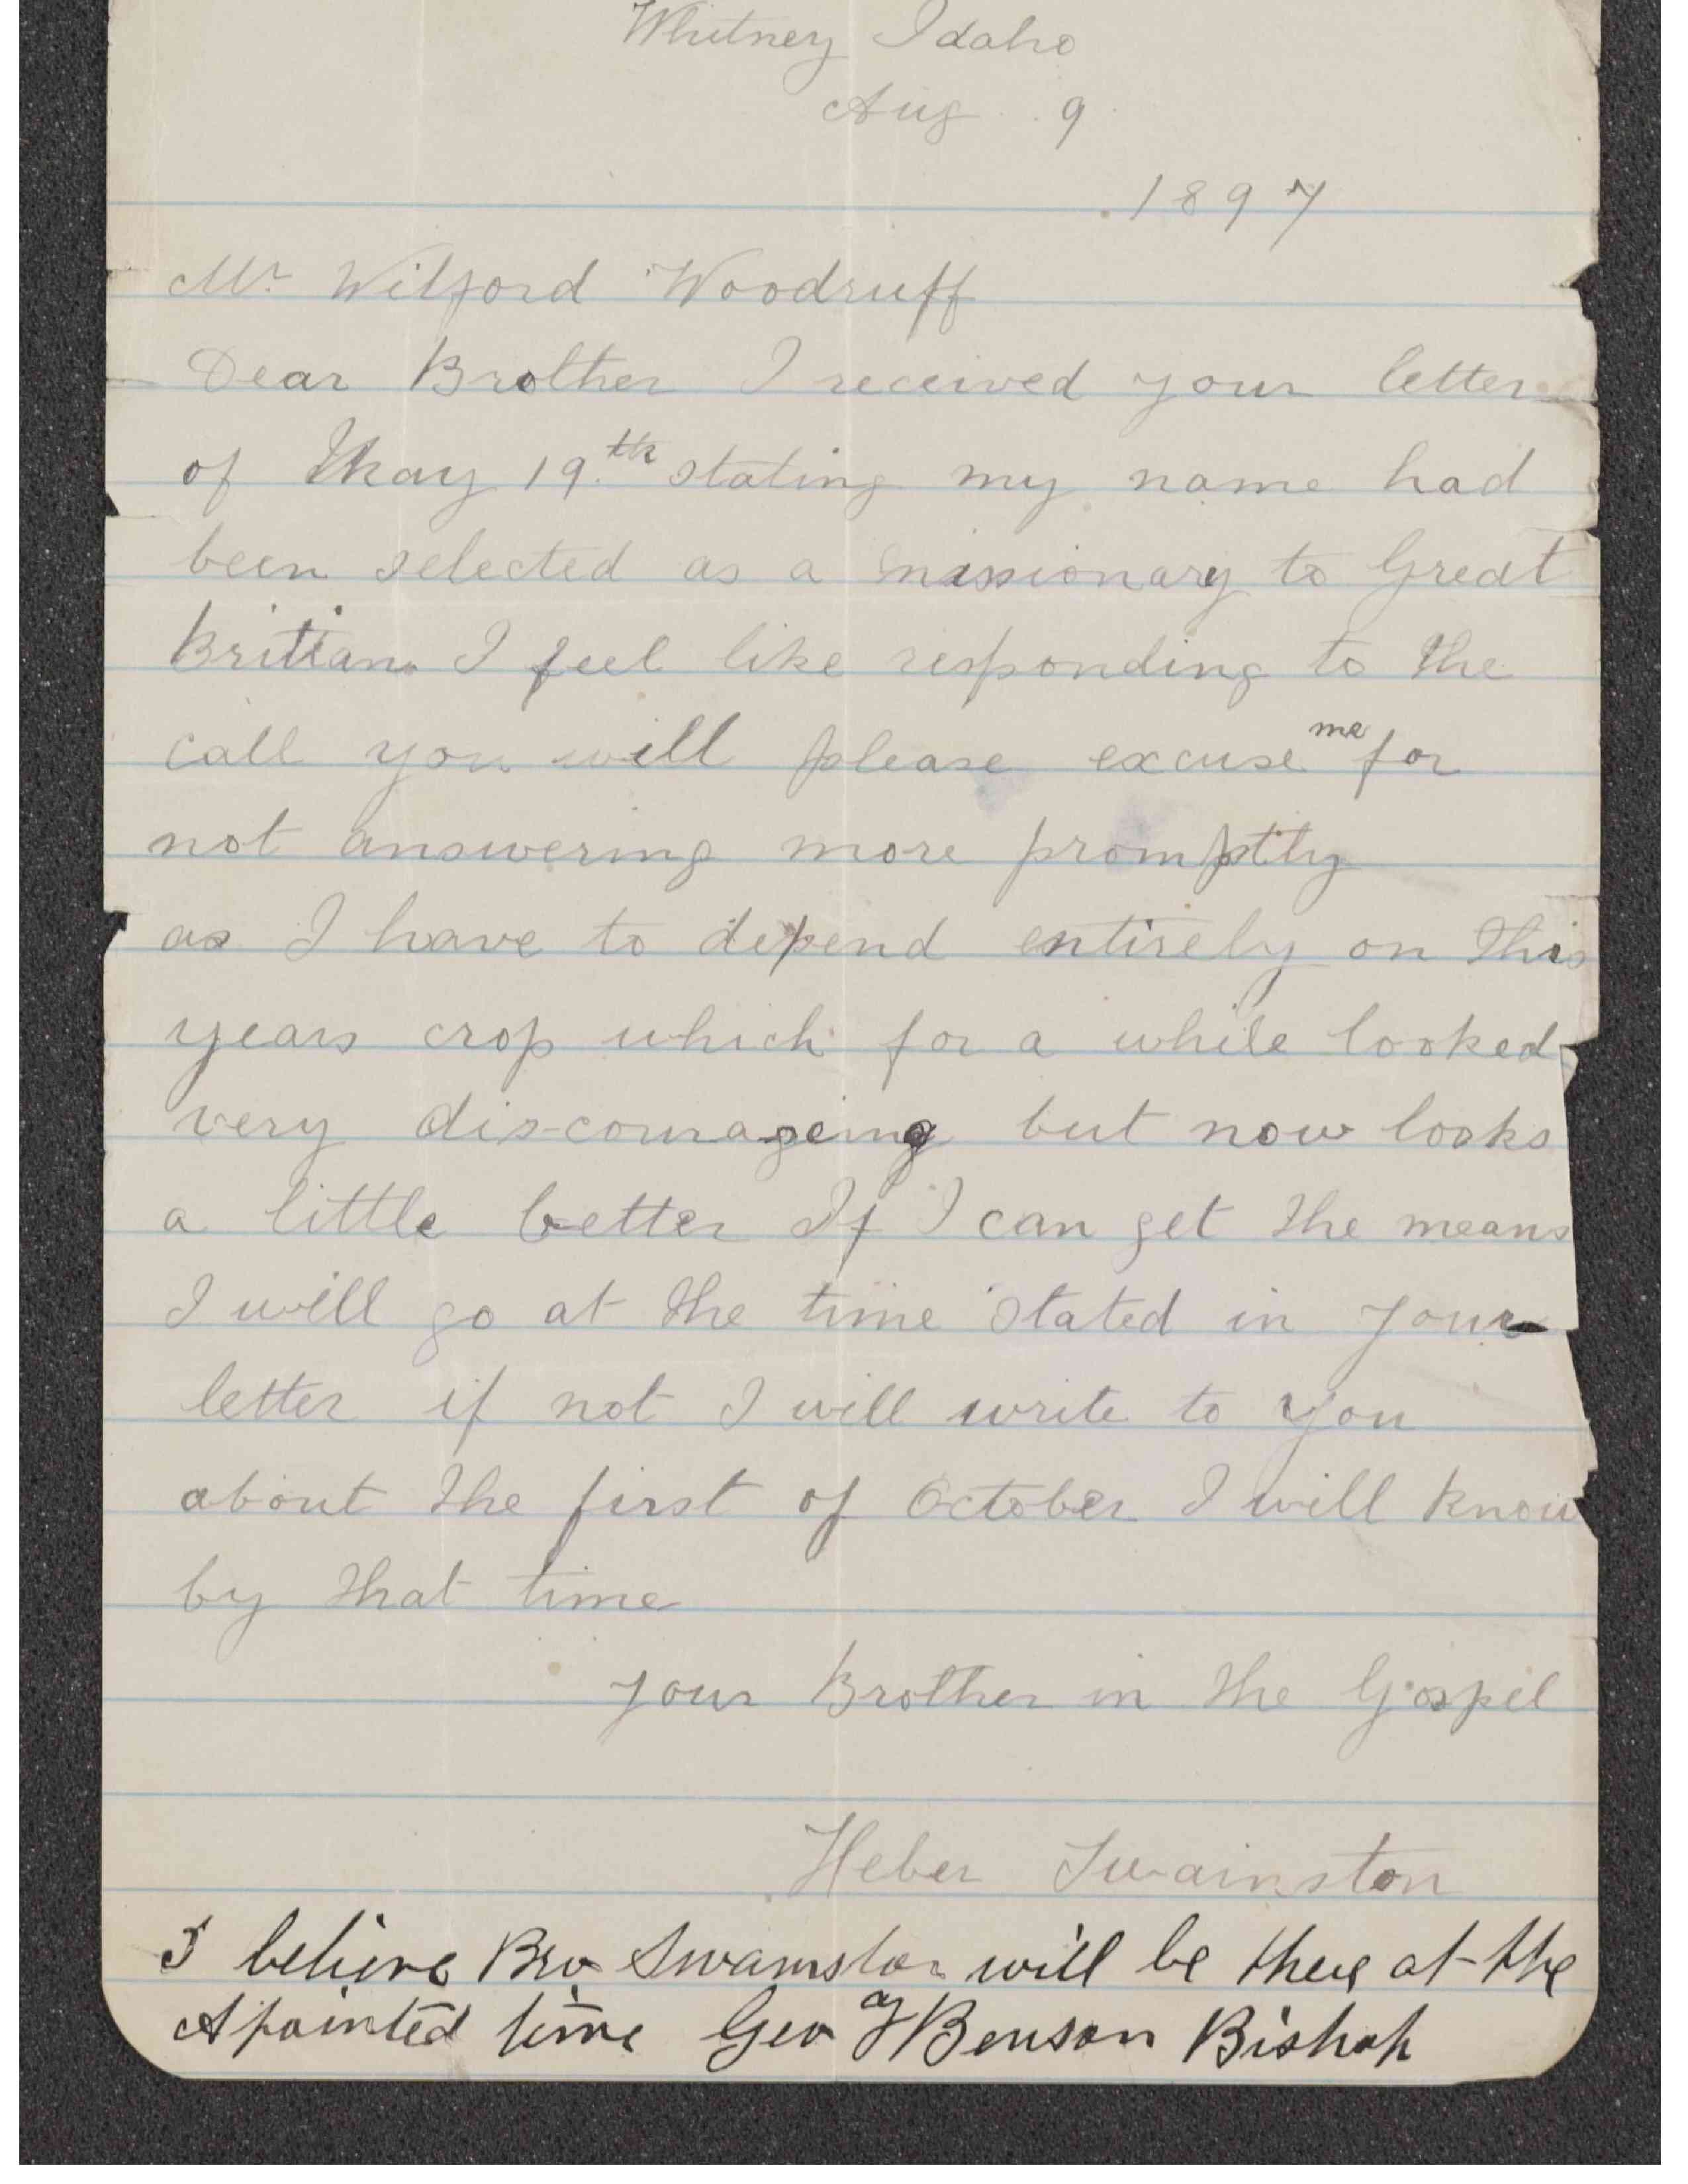 Whitney Idaho
Aug. 9
1897
Mr Wilford Woodruff
Dear Brother I received your letter
of May 19.th stating my name had
been selected as a missionary to Great
Brittian. I feel like responding to the
call you will please excuse me for
not answering more promptly
as I have to depend entirely on this
years crop which for a while looked
very discourageing but now looks
a little better If I can get the means
I will go at the time stated in your
letter if not I will write to you
about the first of October I will know
by that time
your Brother in the Gospel
Heber Swainston
I believe Bro Swainston will be there at the
Apointed time Geo Benson Bishop